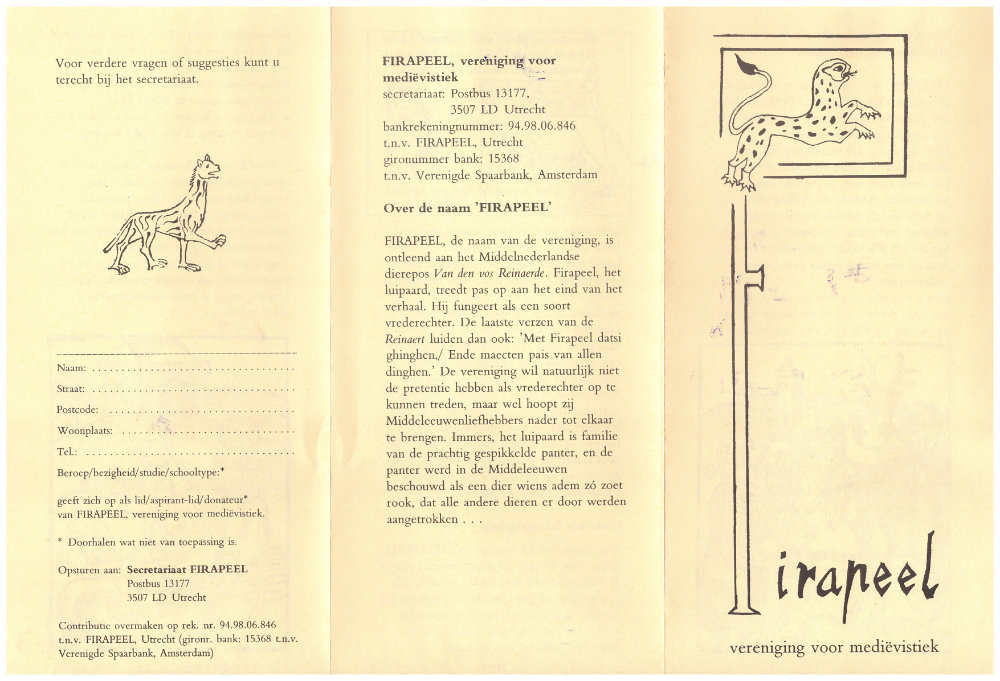 Voor verdere vragen of suggesties kunt u
terecht bij het secretariaat.
Naam:
Straat:
Postcode:
Woonplaats:
Tel.:
Beroep/bezigheid/studie/schooltype:*
geeft zich op als lid/aspirant-lid/donateur*
van FIRAPEEL, vereniging voor mediëvistiek.
* Doorhalen wat niet van toepassing is.
Opsturen aan: Secretariaat FIRAPEEL
Postbus 13177
3507 LD Utrecht
Contributie overmaken op rek. nr. 94.98.06.846
t.n.v. FIRAPEEL, Utrecht (gironr. bank: 15368 t.n.v.
Verenigde Spaarbank, Amsterdam)
FIRAPEEL, vereniging voor
mediëvistiek
secretariaat: Postbus 13177,
3507 LD Utrecht
bankrekeningnummer: 94.98.06.846
t.n.v. FIRAPEEL, Utrecht
gironummer bank: 15368
t.n.v. Verenigde Spaarbank, Amsterdam
Over de naam 'FIRAPEEL'
FIRAPEEL, de naam van de vereniging, is
ontleend aan het Middelnederlandse
dierepos Van den vos Reinaerde. Firapeel, het
luipaard, treedt pas op aan het eind van het
verhaal. Hij fungeert als een soort
vrederechter. De laatste verzen van de
Reinaert luiden dan ook: 'Met Firapeel datsi
ghinghen,/ Ende maecten pais van allen
dinghen.' De vereniging wil natuurlijk niet
de pretentie hebben als vrederechter op te
kunnen treden, maar wel hoopt zij
Middeleeuwenliefhebbers nader tot elkaar
te brengen. Immers, het luipaard is familie
van de prachtig gespikkelde panter, en de
panter werd in de Middeleeuwen
beschouwd als een dier wiens adem zó zoet
rook, dat alle andere dieren er door werden
aangetrokken . . .
Firapeel
vereniging voor mediëvistiek